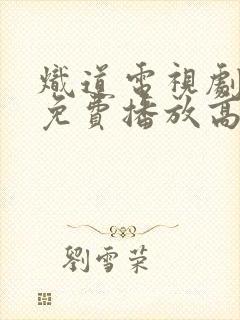 熾道電視劇
免費播放高
劉雪榮